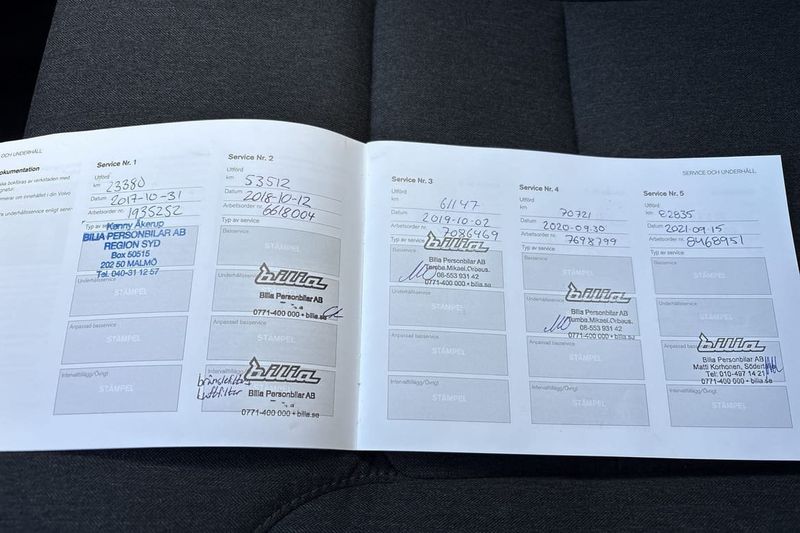 OCH UNDERHÅLL
okumentation
Service Nr. 1
Utförd
km 23380
Datum 2017-10-31
Arbetsorder nr. 1935252
Typ av
Kenny Åkerup
BILIA PERSONBILAR AB
REGION SYD
Box 50515
202 50 MALMÖ
Tel. 040-31 12 57
Underhållsservice
STÄMPEL
Anpassad basservice
STÄMPEL
Intervalltillägg/Övrigt
STÄMPEL
Service Nr. 2
Utförd
km 53512
Datum 2018-10-12
Arbetsorder nr. 6618004
Typ av service
Basservice
STÄMPEL
Underhållsservice
bilia
Bilia Personbilar AB
0771-400 000 • bilia.se
Anpassad basservice
STÄMPEL
Intervalltillägg/Övrigt
bilia
bränslefilter
Luftfilter
Bilia Personbilar AB
0771-400 000 • bilia.se
Service Nr. 3
Utförd
km 61147
Datum 2019-10-02
Arbetsorder nr. 7086469
Typ av service
Basservice
bilia
Bilia Personbilar AB
08-553 931 42
0771-400 000 • bilia.se
Underhållsservice
STÄMPEL
Anpassad basservice
STÄMPEL
Intervalltillägg/Övrigt
STÄMPEL
SERVICE OCH UNDERHÅLL
Service Nr. 4
Utförd
km 70721
Datum 2020-09-30
Arbetsorder nr. 7698799
Typ av service
Basservice
STÄMPEL
Underhållsservice
bilia
Bilia Personbilar AB
08-553 931 42
0771-400 000 • bilia.se
Anpassad basservice
STÄMPEL
Intervalltillägg/Övrigt
STÄMPEL
Service Nr. 5
Utförd
km 82835
Datum 2021-09-15
Arbetsorder nr. 8468951
Typ av service
Basservice
STÄMPEL
Underhållsservice
STÄMPEL
Anpassad basservice
bilia
Bilia Personbilar AB
Matti Korhonen, Södertälje
Tel: 010-497 14 21
0771-400 000 • bilia.se
Intervalltillägg/Övrigt
STÄMPEL